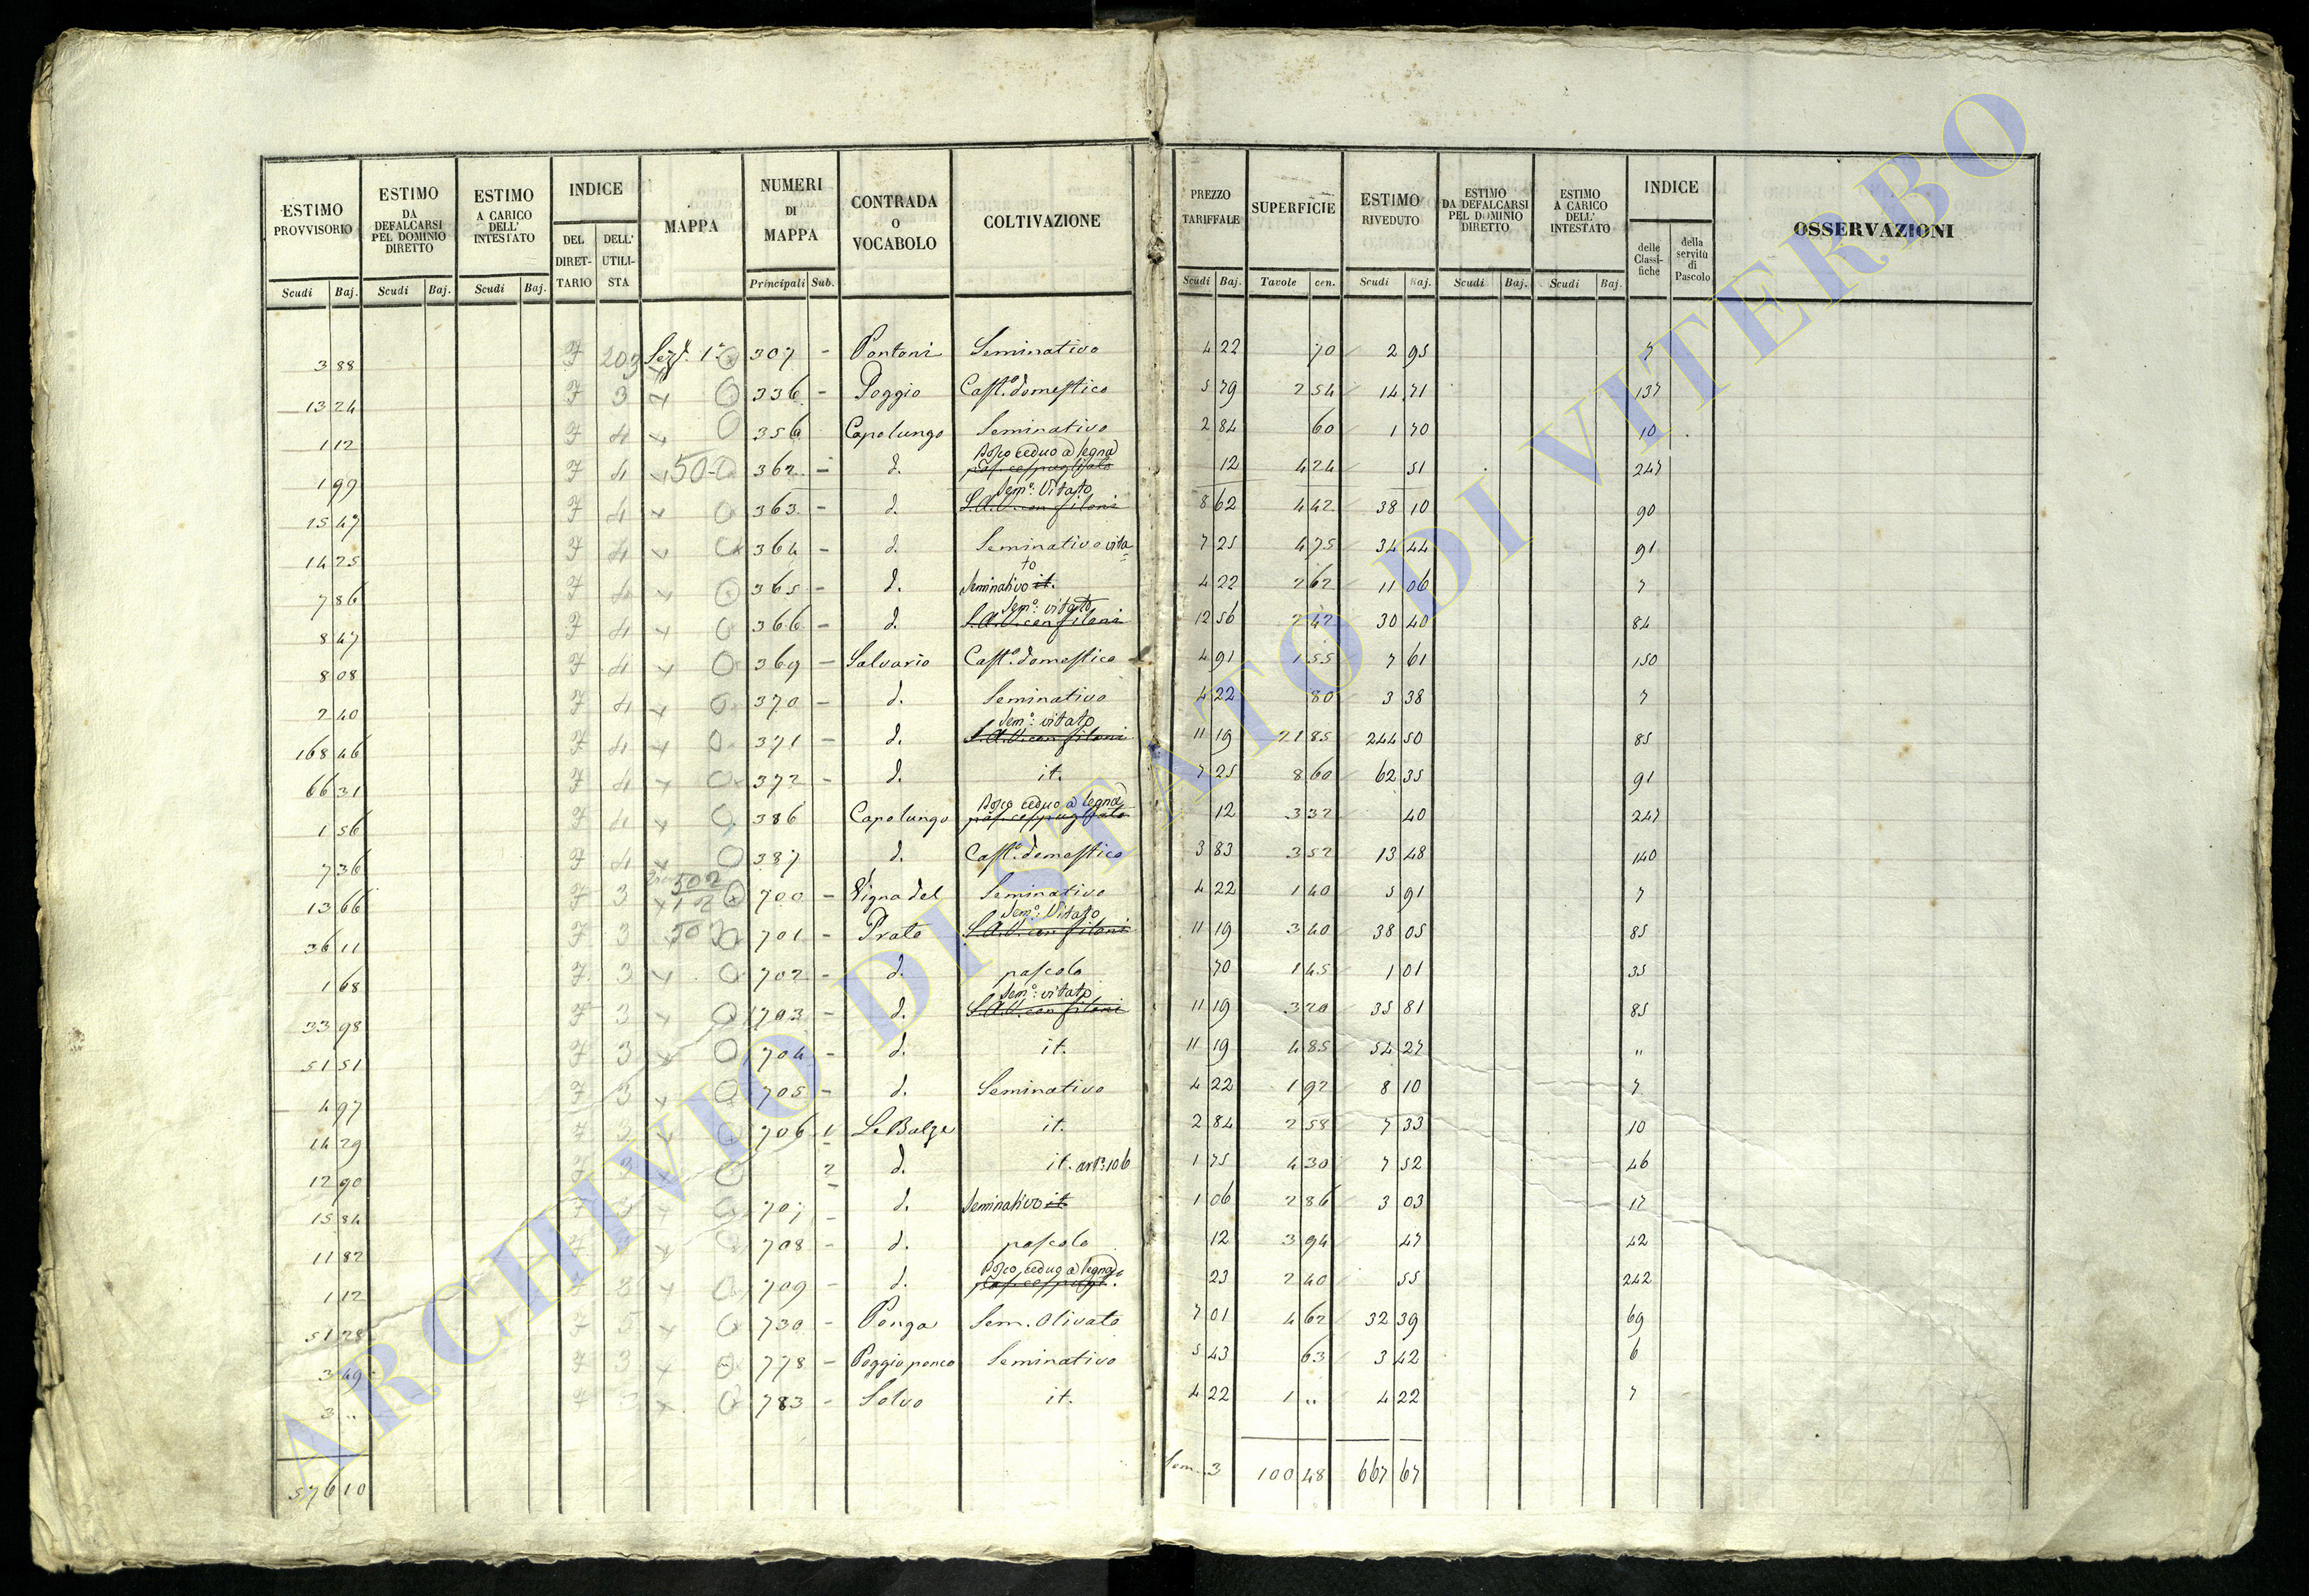 ESTIMO PROVVISORIO | ESTIMO DA DEFALCARSI PEL DOMINIO DIRETTO | ESTIMO A CARICO DELL' INTESTATO | INDICE | MAPPA | NUMERI DI MAPPA | CONTRADA O VOCABOLO | COLTIVAZIONE | PREZZO TARIFFALE | SUPERFICIE | ESTIMO RIVEDUTO | ESTIMO DA DEFALCARSI PEL DOMINIO DIRETTO | ESTIMO A CARICO DELL' INTESTATO | INDICE | OSSERVAZIONI
DEL DIRETTARIO | DELL' UTILISTA | delle Classifiche | della servitù di Pascolo
Scudi | Baj. | Scudi | Baj. | Scudi | Baj. | Principali | Sub. | Scudi | Baj. | Tavole | cen. | Scudi | Baj. | Scudi | Baj. | Scudi | Baj.
3 88 | 203 | Sez. 1a | 307 - | Pontoni | Seminativo | 4 22 | 70 | 2 95 | 7
13 24 | 3 | 336 - | Poggio | Casto. domestico | 5 79 | 2 54 | 14 71 | 137
1 12 | 4 | 356 | Capolungo | Seminativo | 2 84 | 60 | 1 70 | 10
1 99 | 4 | 50 | 362 - | d. | Bosco ceduo a legna | 12 | 4 24 | 51 | 247
25 47 | 4 | 363 - | d. | Semo. Vitato S.A.V. con filoni | 8 62 | 4 42 | 38 10 | 90
14 25 | 4 | 364 - | d. | Seminativo vitato | 7 25 | 4 75 | 34 44 | 91
7 86 | 4 | 365 - | d. | Seminativo it. | 4 22 | 2 62 | 11 06 | 7
8 47 | 4 | 366 - | d. | Semo. vitato S.A.V. con filoni | 12 56 | 2 42 | 30 40 | 84
8 08 | 4 | 369 - | Salvario | Casto. domestico | 4 91 | 1 55 | 7 61 | 150
2 40 | 4 | 370 - | d. | Seminativo | 4 22 | 80 | 3 38 | 7
168 46 | 4 | 371 - | d. | Semo. vitato S.A.V. con filoni | 11 19 | 21 85 | 244 50 | 85
66 31 | 4 | 372 - | d. | it. | 7 25 | 8 60 | 62 35 | 91
1 56 | 4 | 386 | Capolungo | Bosco ceduo a legna | 12 | 3 32 | 40 | 247
7 36 | 4 | 387 | d. | Casto. domestico | 3 83 | 3 52 | 13 48 | 140
13 66 | 3 | 502 | 700 - | Vigna del | Seminativo | 4 22 | 1 40 | 5 91 | 7
36 11 | 3 | 701 - | Prato | Semo. Vitato S.A.V. con filoni | 11 19 | 3 40 | 38 05 | 85
1 68 | 3 | 702 - | d. | pascolo | 70 | 1 45 | 1 01 | 35
33 98 | 3 | 703 - | d. | Semo. vitato S.A.V. con filoni | 11 19 | 3 20 | 35 81 | 85
51 51 | 3 | 704 - | d. | it. | 11 19 | 4 85 | 54 27 | "
4 97 | 3 | 705 - | d. | Seminativo | 4 22 | 1 92 | 8 10 | 7
14 29 | 3 | 706 1 | Le Balze | it. | 2 84 | 2 58 | 7 33 | 10
12 90 | 3 | 2 | d. | it. arto. 106 | 1 75 | 4 30 | 7 52 | 46
15 84 | 3 | 707 - | d. | Seminativo it. | 1 06 | 2 86 | 3 03 | 17
11 82 | 3 | 708 - | d. | pascolo | 12 | 3 94 | 47 | 42
1 12 | 3 | 709 - | d. | Bosco ceduo a legna | 23 | 2 40 | 55 | 242
51 28 | 730 - | Ponga | Sem. olivato | 7 01 | 4 62 | 32 39 | 69
3 49 | 3 | 778 - | Poggio ponco | Seminativo | 5 43 | 63 | 3 42 | 6
3 " | 783 - | Selva | it. | 4 22 | 1 " | 4 22 | 7
576 10 | Som. 3 | 100 48 | 667 67
ARCHIVIO DI STATO DI VITERBO